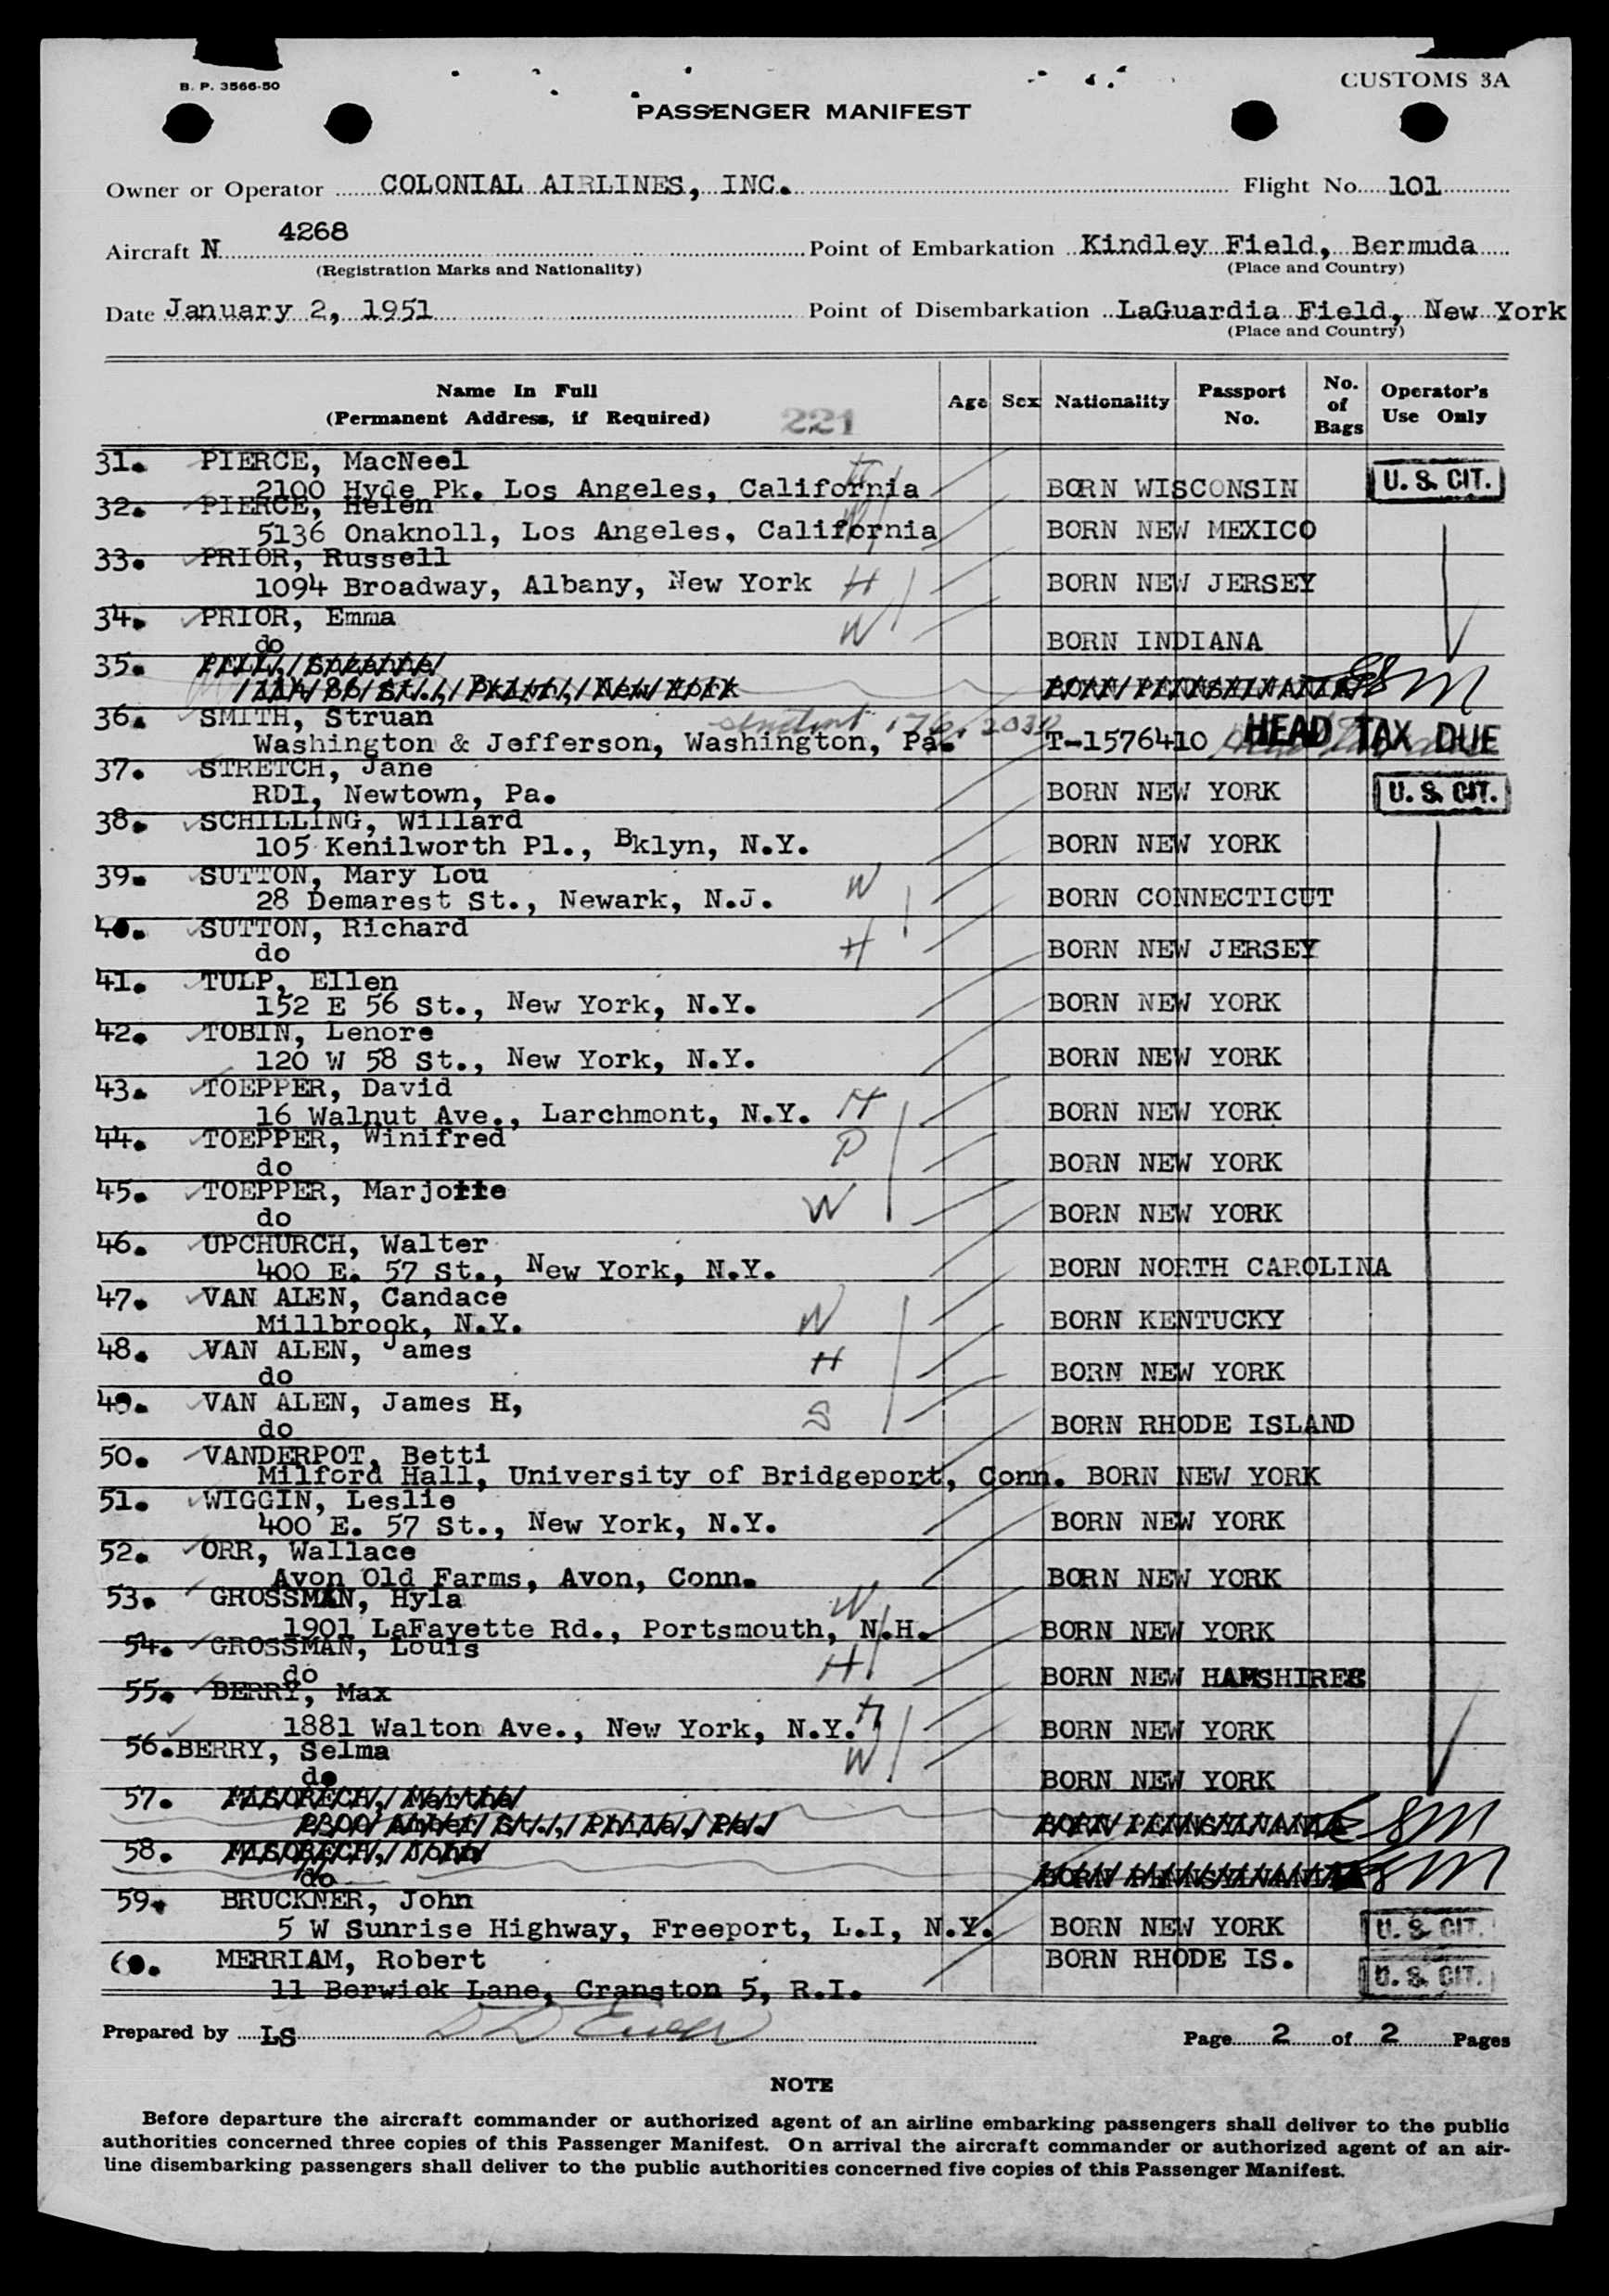 B. P. 3566-50
CUSTOMS 3A
PASSENGER MANIFEST
Owner or Operator COLONIAL AIRLINES, INC. Flight No. 101
Aircraft N 4268 Point of Embarkation Kindley Field, Bermuda
(Registration Marks and Nationality) (Place and Country)
Date January 2, 1951 Point of Disembarkation LaGuardia Field, New York
(Place and Country)
Name In Full (Permanent Address, if Required) 221 Age Sex Nationality Passport No. No. of Bags Operator's Use Only
31. PIERCE, MacNeel H
2100 Hyde Pk. Los Angeles, California BORN WISCONSIN U. S. CIT.
32. PIERCE, Helen W
5136 Onaknoll, Los Angeles, California BORN NEW MEXICO
33. PRIOR, Russell
1094 Broadway, Albany, New York H BORN NEW JERSEY
34. PRIOR, Emma W
do BORN INDIANA
35.
St., Bklyn, New York BORN PENNSYLVANIA
36. SMITH, Struan student
Washington & Jefferson, Washington, Pa. T-1576410 HEAD TAX DUE
37. STRETCH, Jane
RD1, Newtown, Pa. BORN NEW YORK U. S. CIT.
38. SCHILLING, Willard
105 Kenilworth Pl., Bklyn, N.Y. BORN NEW YORK
39. SUTTON, Mary Lou W
28 Demarest St., Newark, N.J. BORN CONNECTICUT
40. SUTTON, Richard H
do BORN NEW JERSEY
41. TULP, Ellen
152 E 56 St., New York, N.Y. BORN NEW YORK
42. TOBIN, Lenore
120 W 58 St., New York, N.Y. BORN NEW YORK
43. TOEPPER, David
16 Walnut Ave., Larchmont, N.Y. H BORN NEW YORK
44. TOEPPER, Winifred D
do BORN NEW YORK
45. TOEPPER, Marjorie W
do BORN NEW YORK
46. UPCHURCH, Walter
400 E. 57 St., New York, N.Y. BORN NORTH CAROLINA
47. VAN ALEN, Candace W
Millbrook, N.Y. BORN KENTUCKY
48. VAN ALEN, James H
do BORN NEW YORK
49. VAN ALEN, James H, S
do BORN RHODE ISLAND
50. VANDERPOT, Betti
Milford Hall, University of Bridgeport, Conn. BORN NEW YORK
51. WIGGIN, Leslie
400 E. 57 St., New York, N.Y. BORN NEW YORK
52. ORR, Wallace
Avon Old Farms, Avon, Conn. BORN NEW YORK
53. GROSSMAN, Hyla W
1901 LaFayette Rd., Portsmouth, N.H. BORN NEW YORK
54. GROSSMAN, Louis H
do BORN NEW HAMSHIRE
55. BERRY, Max H
1881 Walton Ave., New York, N.Y. BORN NEW YORK
56. BERRY, Selma W
do BORN NEW YORK
57. Martha
2300 Amber St., Phila. Pa. BORN PENNSYLVANIA
58. John
do BORN PENNSYLVANIA
59. BRUCKNER, John
5 W Sunrise Highway, Freeport, L.I, N.Y. BORN NEW YORK U. S. CIT.
60. MERRIAM, Robert BORN RHODE IS.
11 Berwick Lane, Cranston 5, R.I. U. S. CIT.
Prepared by LS Page 2 of 2 Pages
NOTE
Before departure the aircraft commander or authorized agent of an airline embarking passengers shall deliver to the public
authorities concerned three copies of this Passenger Manifest. On arrival the aircraft commander or authorized agent of an air-
line disembarking passengers shall deliver to the public authorities concerned five copies of this Passenger Manifest.